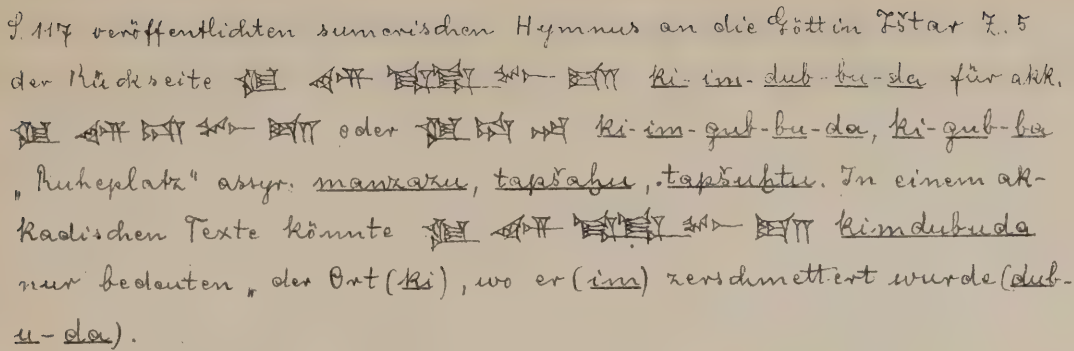 S. 117 veröffentlichten sumerischen Hymnus an die Göttin Ištar Z. 5
der Rückseite ki-im-dub-bu-da für akk.
oder ki-im-gub-bu-da, ki-gub-ba
„Ruheplatz“ assyr. manzazu, tapšaḫu, tapšuḫtu. In einem ak-
kadischen Texte könnte kimdubuda
nur bedeuten „der Ort (ki), wo er (im) zerschmettert wurde (dub-
u-da).